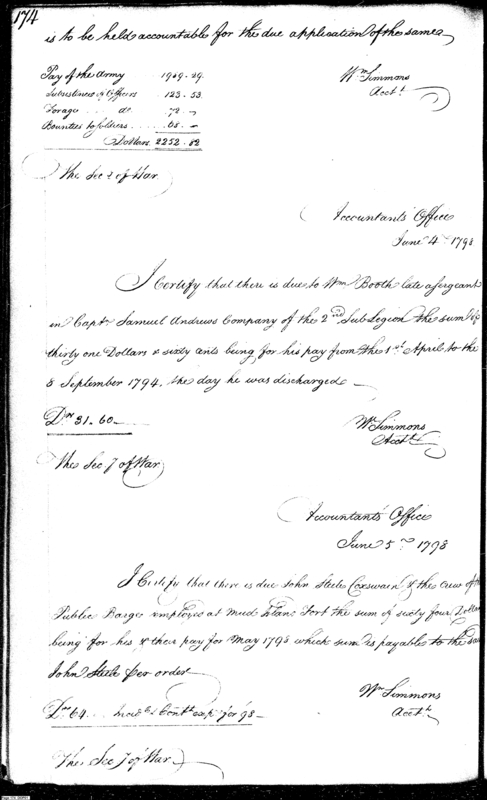 174
is to be held accountable for the due application of the same
Pay of the Army 1989.29.
Subsistence of Officers 123.53
Forage do 72.
Bounties to Soldiers 68.
Dollars 2252.82
Wm Simmons
Acctt
The Secy of War
Accountants Office
June 4th 1798
I Certify that there is due to Wm Booth late a Sergeant
in Captn Samuel Andrews Company of the 2nd Sub Legion the sum of
thirty one Dollars & sixty Cents being for his pay from the 1st April to the
8 September 1794. the day he was discharged
Drs 31.60
Wm Simmons
Acctt
The Secy of War
Accountants Office
June 5th 1798
I Certify that there is due John Steele Coxswain & the Crew of the
Public Barge employed at Mud Island Fort the sum of sixty four Dollars
being for his & their pay for May 1798 which sum is payable to the said
John Steele per order
Drs 64. Contt exps for 98
Wm Simmons
Acctt
The Secy of War